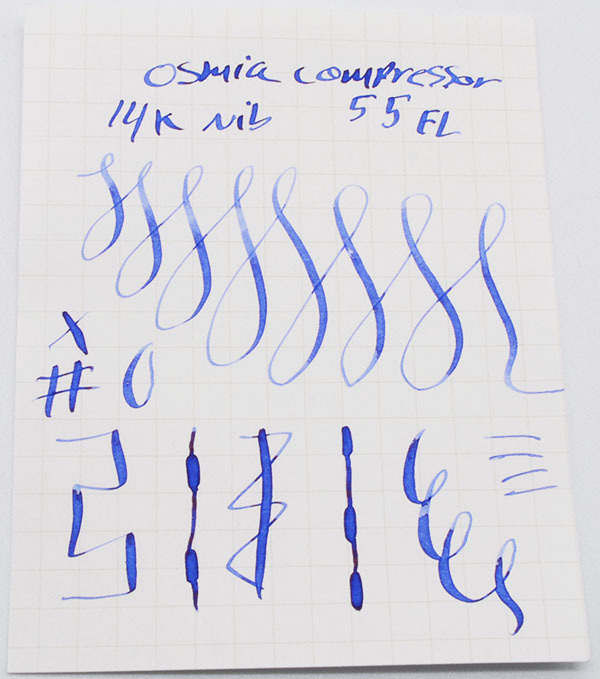 Osmia compressor
14K Nib 55 FL
X
# 0